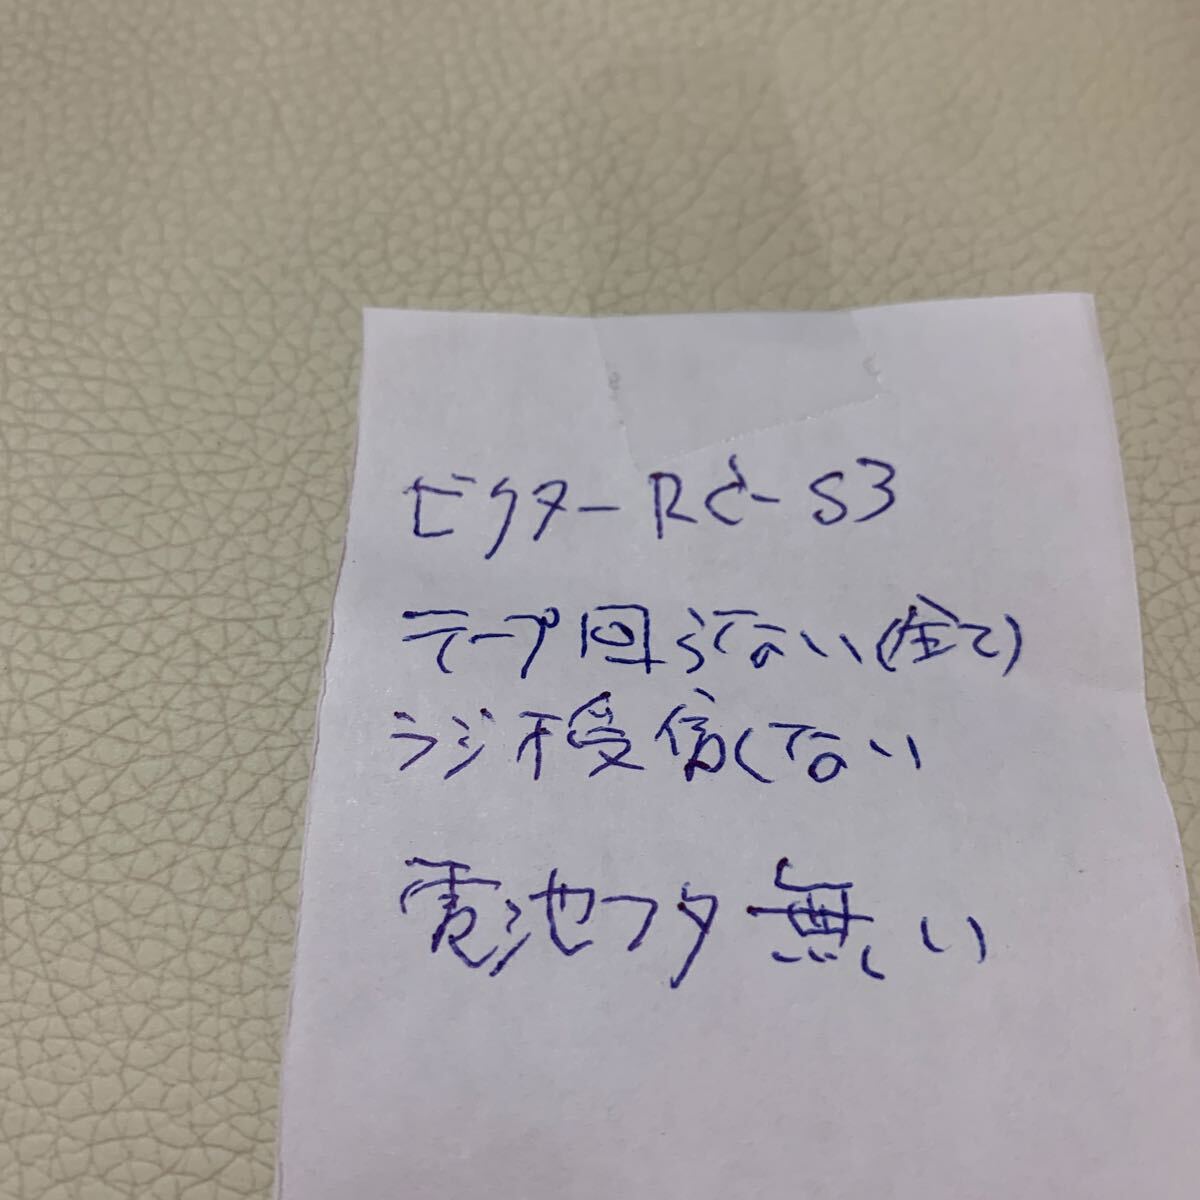 ビクター RC-S3
テープ回らない(全て)
ラジオ受信しない
電池フタ無い